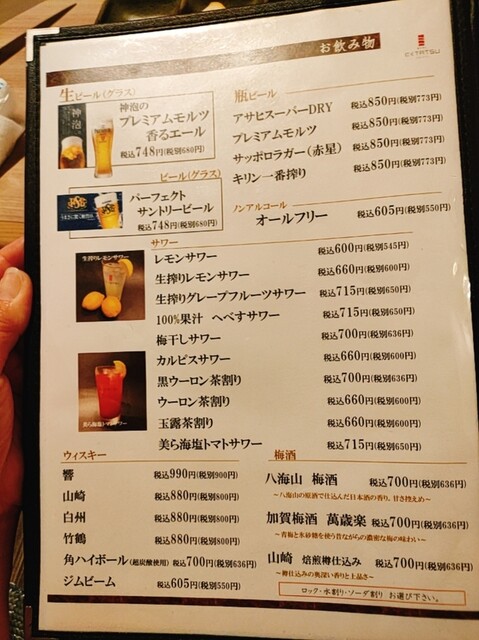 お飲み物
EXTATSU
生ビール(グラス)
神泡
神泡の
プレミアムモルツ
香るエール
税込748円(税別680円)
瓶ビール
アサヒスーパーDRY 税込850円(税別773円)
プレミアムモルツ 税込850円(税別773円)
サッポロラガー(赤星) 税込850円(税別773円)
キリン一番搾り 税込850円(税別773円)
ビール(グラス)
パーフェクト
サントリービール
税込748円(税別680円)
ノンアルコール
オールフリー 税込605円(税別550円)
サワー
生搾りレモンサワー
レモンサワー 税込600円(税別545円)
生搾りレモンサワー 税込660円(税別600円)
生搾りグレープフルーツサワー 税込715円(税別650円)
100%果汁 へべすサワー 税込715円(税別650円)
梅干しサワー 税込700円(税別636円)
カルピスサワー 税込660円(税別600円)
黒ウーロン茶割り 税込700円(税別636円)
ウーロン茶割り 税込660円(税別600円)
玉露茶割り 税込660円(税別600円)
美ら海塩トマトサワー 税込715円(税別650円)
美ら海塩トマトサワー
ウィスキー
響 税込990円(税別900円)
山崎 税込880円(税別800円)
白州 税込880円(税別800円)
竹鶴 税込880円(税別800円)
角ハイボール(超炭酸使用) 税込700円(税別636円)
ジムビーム 税込605円(税別550円)
梅酒
八海山 梅酒 税込700円(税別636円)
~八海山の原酒で仕込んだ日本酒の香り、甘さ控えめ~
加賀梅酒 萬歳楽 税込700円(税別636円)
~青梅と氷砂糖を使う昔ながらの濃密な梅の味わい~
山崎 焙煎樽仕込み 税込700円(税別636円)
~樽仕込みの奥深い香りと上品さ~
ロック・水割り・ソーダ割り お選び下さい。